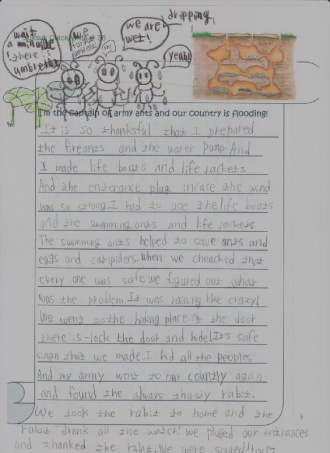 wait
a minute
there is
umbrella
we
are
wet!
dripping
yeah!
I'm the Captain of army ants and our country is flooding!
It is so thankful that I prepared
the fireants and the water pump. And
I made life boats and life jackets
And the enterance plug incase the wind
was so strong. I had to use the life boats
and the swimming ants and life jackets.
The swimming ants helped to save ants and
eggs and catipiders. When we cheacked that
every one was safe, we figured out what
was the problem. It was raining like crazy!
We went to the hiding place. At the door
there is-lock the door and hide! It's safe
sign that we made. I hid all the peoples
And my army went to our country again
and found the always thirsty rabit.
We took the rabit to home and the
rabit drank all the water! we pluged our entrances
and thanked the rabit. We were saved!